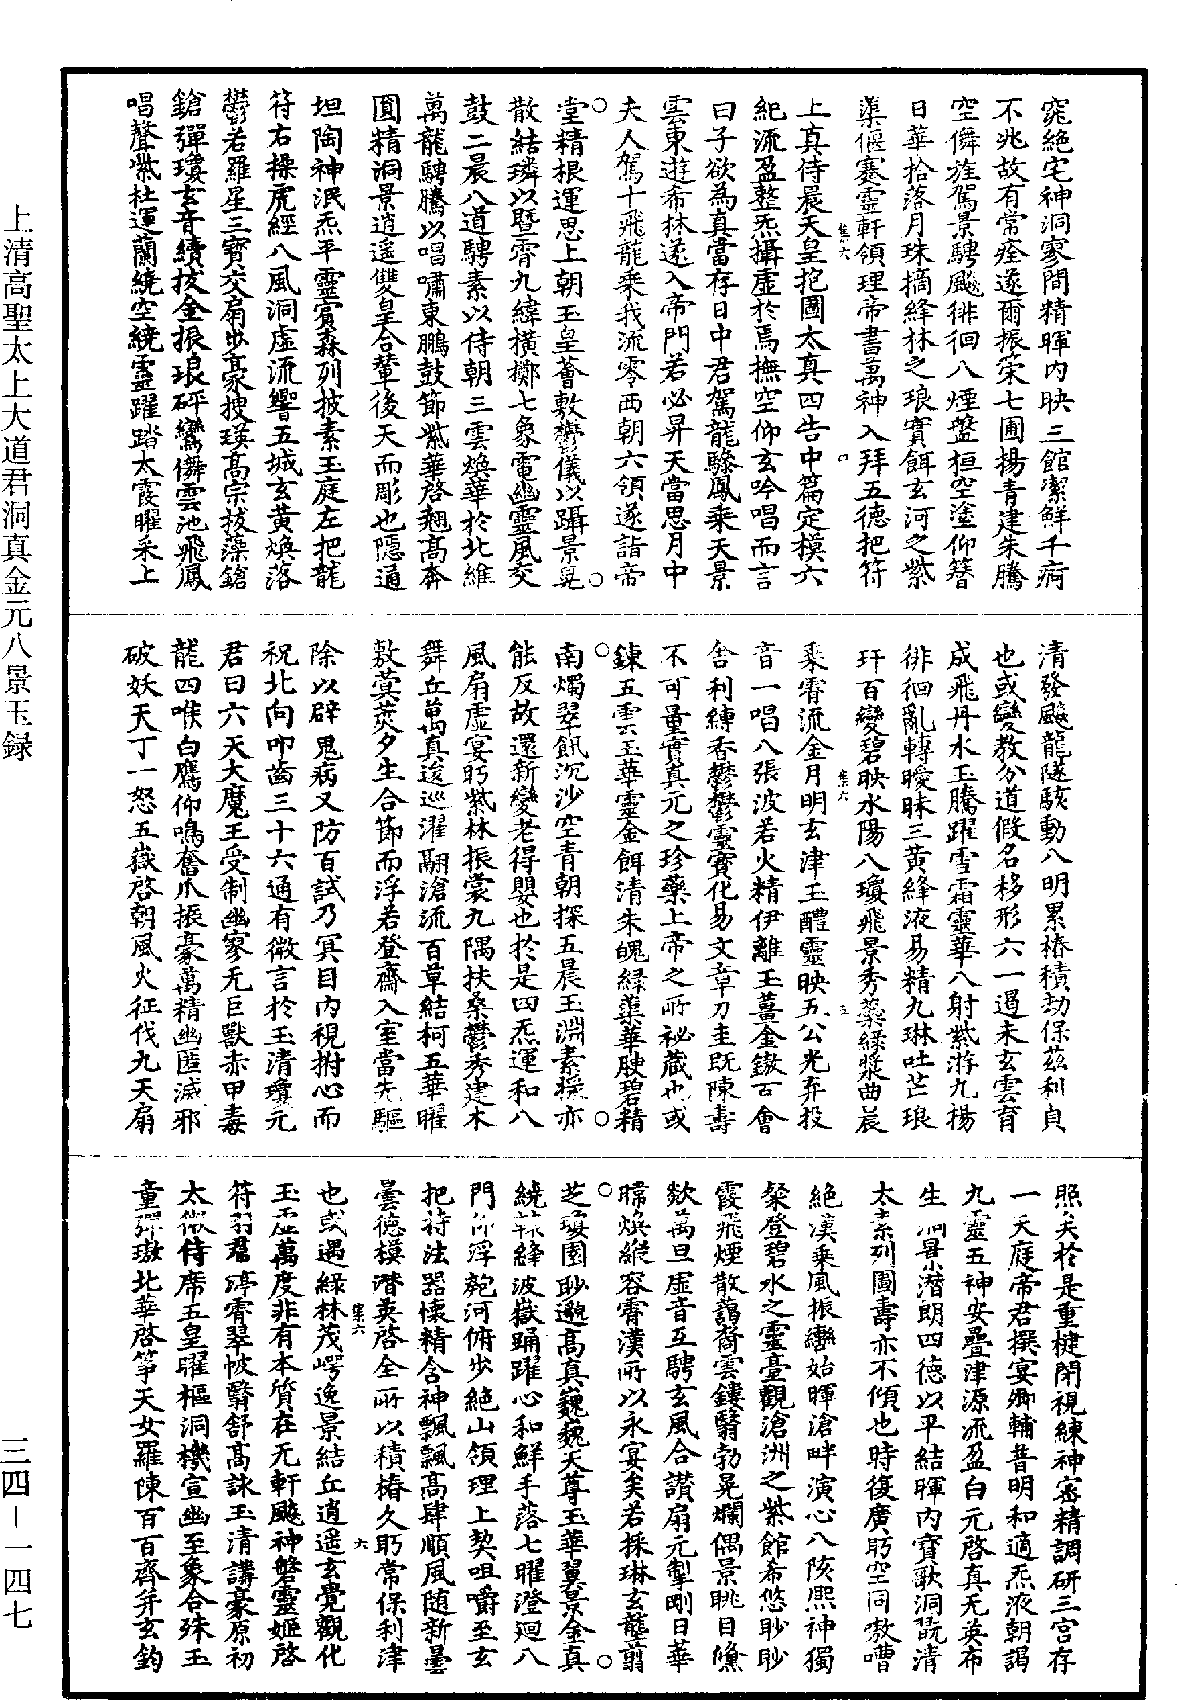 窕絶宅神洞寥間精暉内映三館潔鮮千痾
不兆故有常痊遂爾振策七圃揚青建朱騰
空儛旌駕景騁飈徘徊八煙盤桓空塗仰簪
日華拾落月珠摘絳林之琅實餌玄河之紫
蕖偃蹇靈軒領理帝書萬神入拜五德把符
上真侍晨天皇抱圖太真四告中篇定模六
紀流盈整炁攝虚於焉撫空仰玄吟唱而言
曰子欲為真當存日中君駕龍驂鳳乘天景
雲東遊希林遂入帝門若必昇天當思月中
夫人駕十飛龍乘我流零西朝六領遂詣帝
堂精根運思上朝玉皇薈敷鬱儀以躡景晃
散結璘以暨霄九緯横擲七象電幽靈風交
鼓二晨八道騁素以侍朝三雲煥華於北維
萬龍騁騰以唱嘯東鵬鼓節紫華啓翹高奔
圓精洞景逍遥雙皇合輦後天而彫也隱通
坦陶神泯炁平靈賓森列披素玉庭左把龍
符右操虎經八風洞虚流響五城玄黄煥落
鬱若羅星三寶交扇步豪披瑛高宗拔藻鎗
鎗彈瓊玄音續拔金振琅砰鸞儛雲池飛鳳
唱聲紫杜運蘭繞空繞靈躍踏太霞曜采上
清發飈龍隧駭動八明累椿積劫保兹利貞
也或變教分道假名移形六一遏末玄雲育
成飛丹水玉騰躍雪霜靈華八射紫游九揚
徘徊亂轉曖昧三黄絳液易精九琳吐芒琅
玕百變碧映水陽八瓊飛景秀蘂緑漿曲晨
乘霄流金月明玄津玉醴靈映五公光弃投
音一唱八張波若火精伊離玉薑金鏾百會
舍利練香鬱鬱靈寶化易文章刀圭既陳壽
不可量實真元之珍藥上帝之所秘藏也或
鍊五雲玉華靈金餌清朱䰟緑蕖華腴碧精
南燭翠飢沉沙空青朝探五晨玉淵素䅥亦
能反故還新變老得嬰也於是四炁運和八
風扇虚宴眄紫林振裳九隅扶桑鬱秀建木
舞丘萬真遠巡濯翮滄流百草結柯五華曜
敷蓂莢夕生合節而浮若登齋入室當先驅
除以辟鬼病又防百試乃冥目内視拊心而
祝北向叩齒三十六通有微言於玉清瓊元
君曰六天大魔王受制幽寥无巨獸赤甲毒
龍四喉白鷹仰鳴奮爪振豪萬精幽匿滅邪
破妖天丁一怒五嶽啓朝風火征伐九天扇
照矣於是重楗閉視練神密精調研三宫存
一天庭帝君撰宴卿輔普明和適炁液朝謁
九靈五神安疊津源流盈白元啓真无英布
生洞景潜朗四德以平結暉内寶歌洞翫清
太素列圖壽亦不傾也時復廣眄空同嗷嘈
絶漢乘風振轡始暉滄畔演心八陔熙神獨
粲登碧水之靈臺觀滄洲之紫館希悠眇眇
霞飛煙散藹裔雲鏤翳勃晃爛偶景眺目儵
欻萬旦虚音互騁玄風合讃扇元掣剛日華
暐煥縱容霄漢所以永宴矣若採琳玄壟翦
芝瓊園眇邈高真巍巍天尊玉華翼景金真
繞錄絳波嶽踊躍心和鮮手落七曜澄迴八
門仰浮䴟河俯步絶山領理上契咀嚼至玄
把持法器懷精含神飄飄高肆順風随新曇
曇德模濳英啓全所以積椿久眄常保利津
也或遇緑林茂㟧逸景結丘逍遥玄覺觀化
玉虚萬度非有本質在无軒飈神盤靈姬啓
符翦君渟霄翠帔翳舒高詠玉清講豪原初
太微侍席五皇曜樞洞機宣幽至象合殊玉
童彈璈北華啓筝天女羅陳百百齊弁玄鈞
上清高聖太上大道君洞真金元八景玉録
三四－一四七